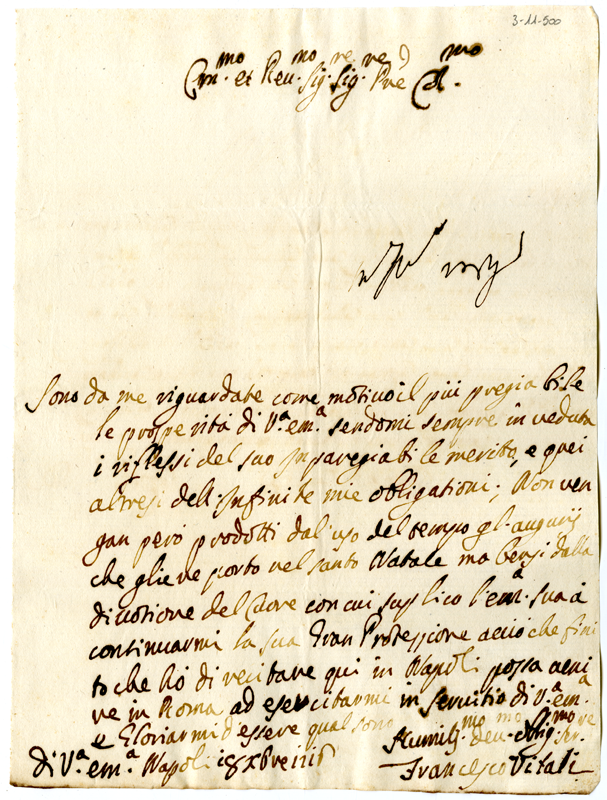 3-11-500
Em.mo et Reu.mo Sig.re Sig.re Pre Col.mo
Sono da me riguardate come motiuo il piú pregiabile
le prosperitá di V.a em.a sendomi sempre in veduta
i riflessi del suo Inparegiabile merito, e quei
altresi dell'Infinite mie obligationi; Non ven
gan peró prodotti dal'uso del tempo gl'augurij
che gliene porto nel santo Natale ma bensi dalla
diuotione del Core con cui suplico l'em.a sua á
continuarmi la sua Gran Protezzione acció che fini
to che hó di recitare qui in Napoli possa aueni
re in Roma ad esercitarmi in seruitio di V.a em.a
e Gloriarmi d'essere qual sono
di V.a em.a Napoli 18 Xbre
Humilis.mo deu.mo Oblig.mo Ser.re
Francesco Vitali